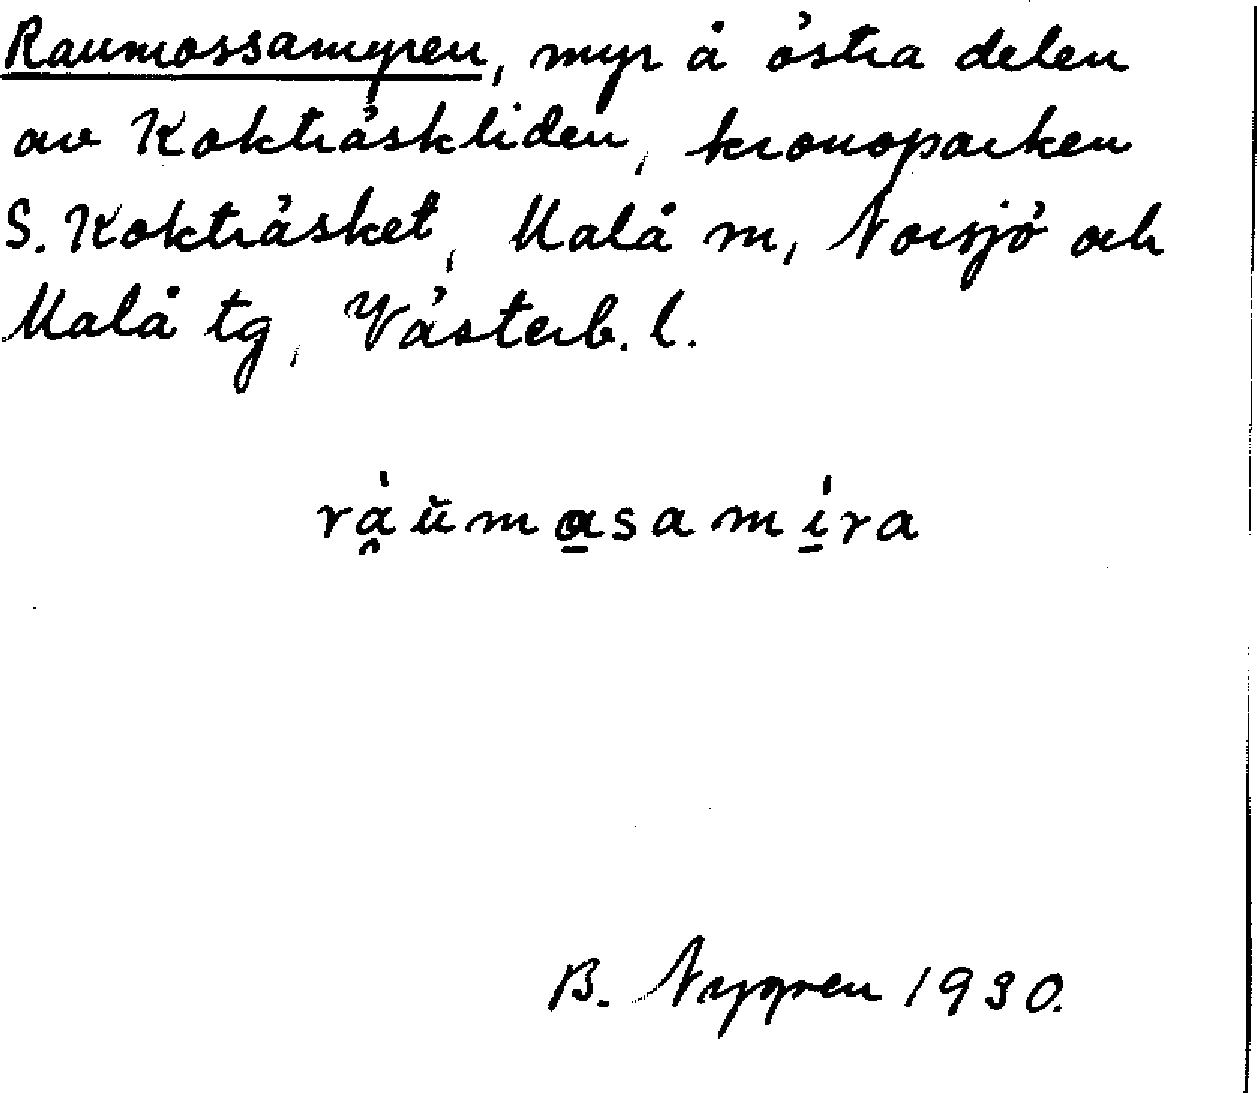 Raumossamyren, myr å östra delen
av Kokträskliden, kronoparken
S. Kokträsket, Malå m, Norsjö och
Malå tg, Västerb. l.
rá̯ŭma̲samí̲ra
B. Nygren 1930.